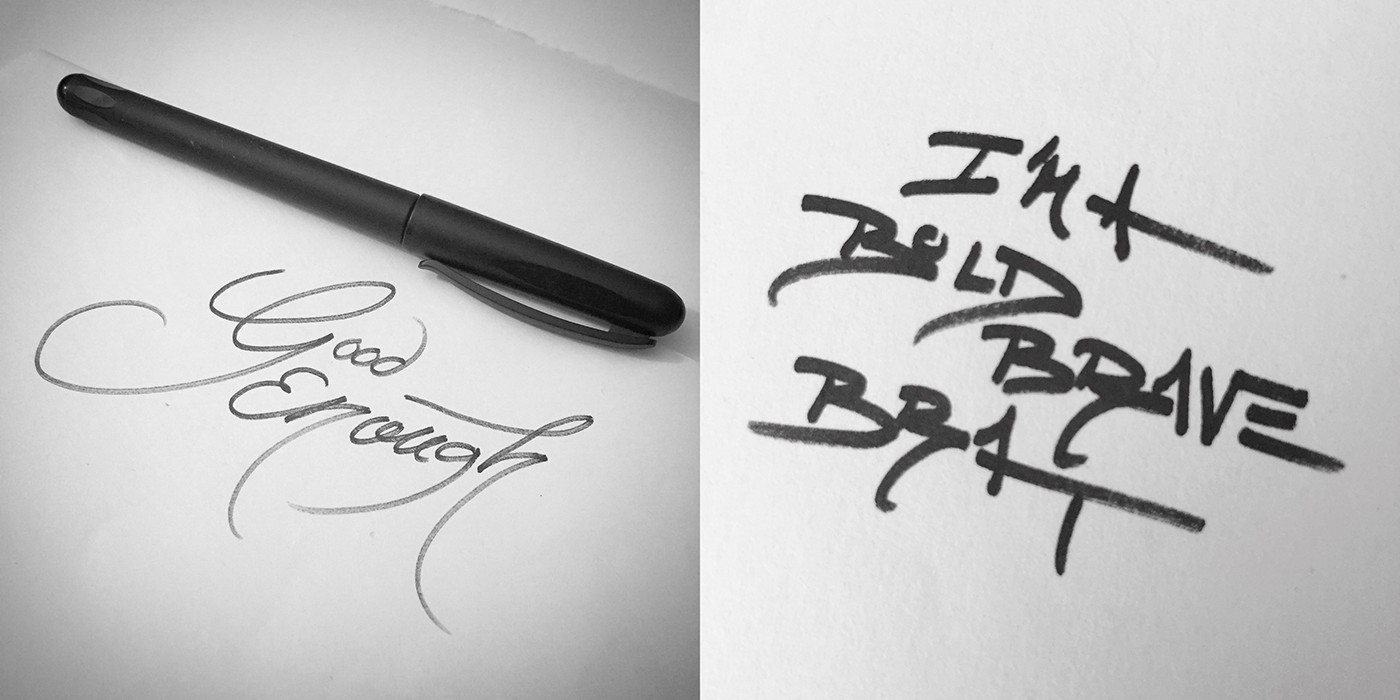 Good
Enough
I'M A
BOLD
BRAVE
BRAT